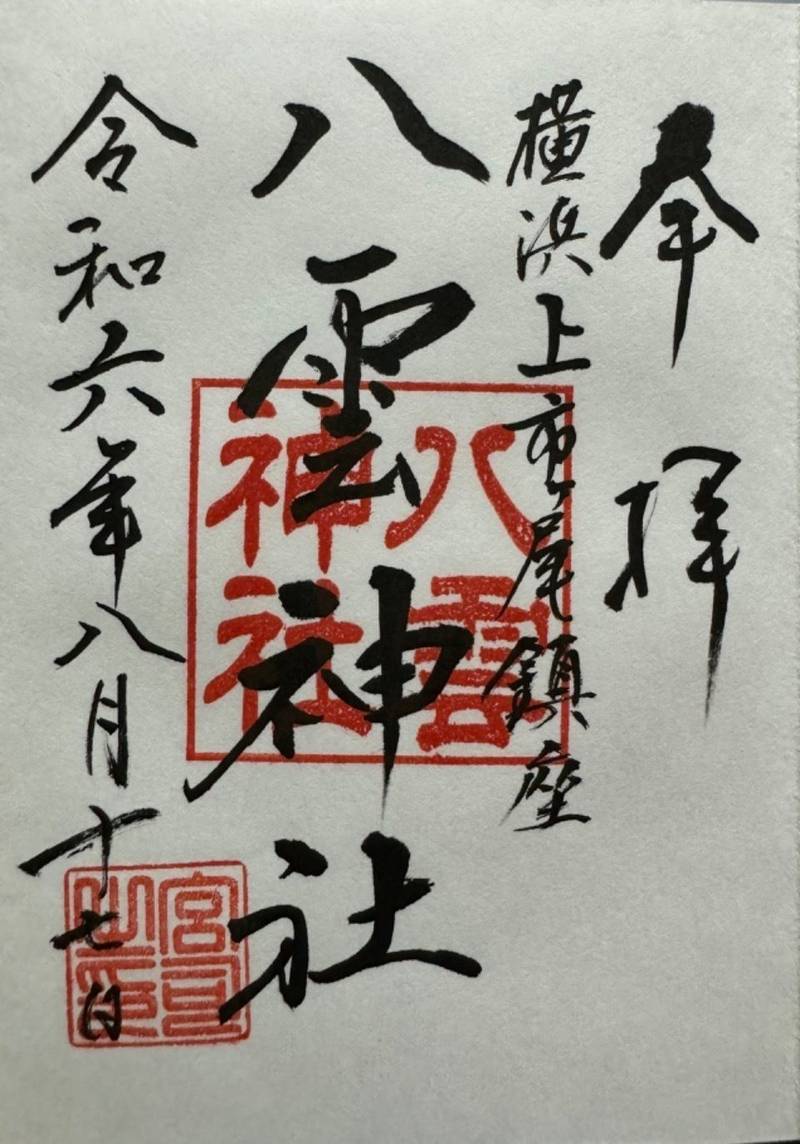 奉拝
横浜上市ヶ尾鎮座
八雲神社
八雲
神社
令和六年八月十七日
宮司
之印